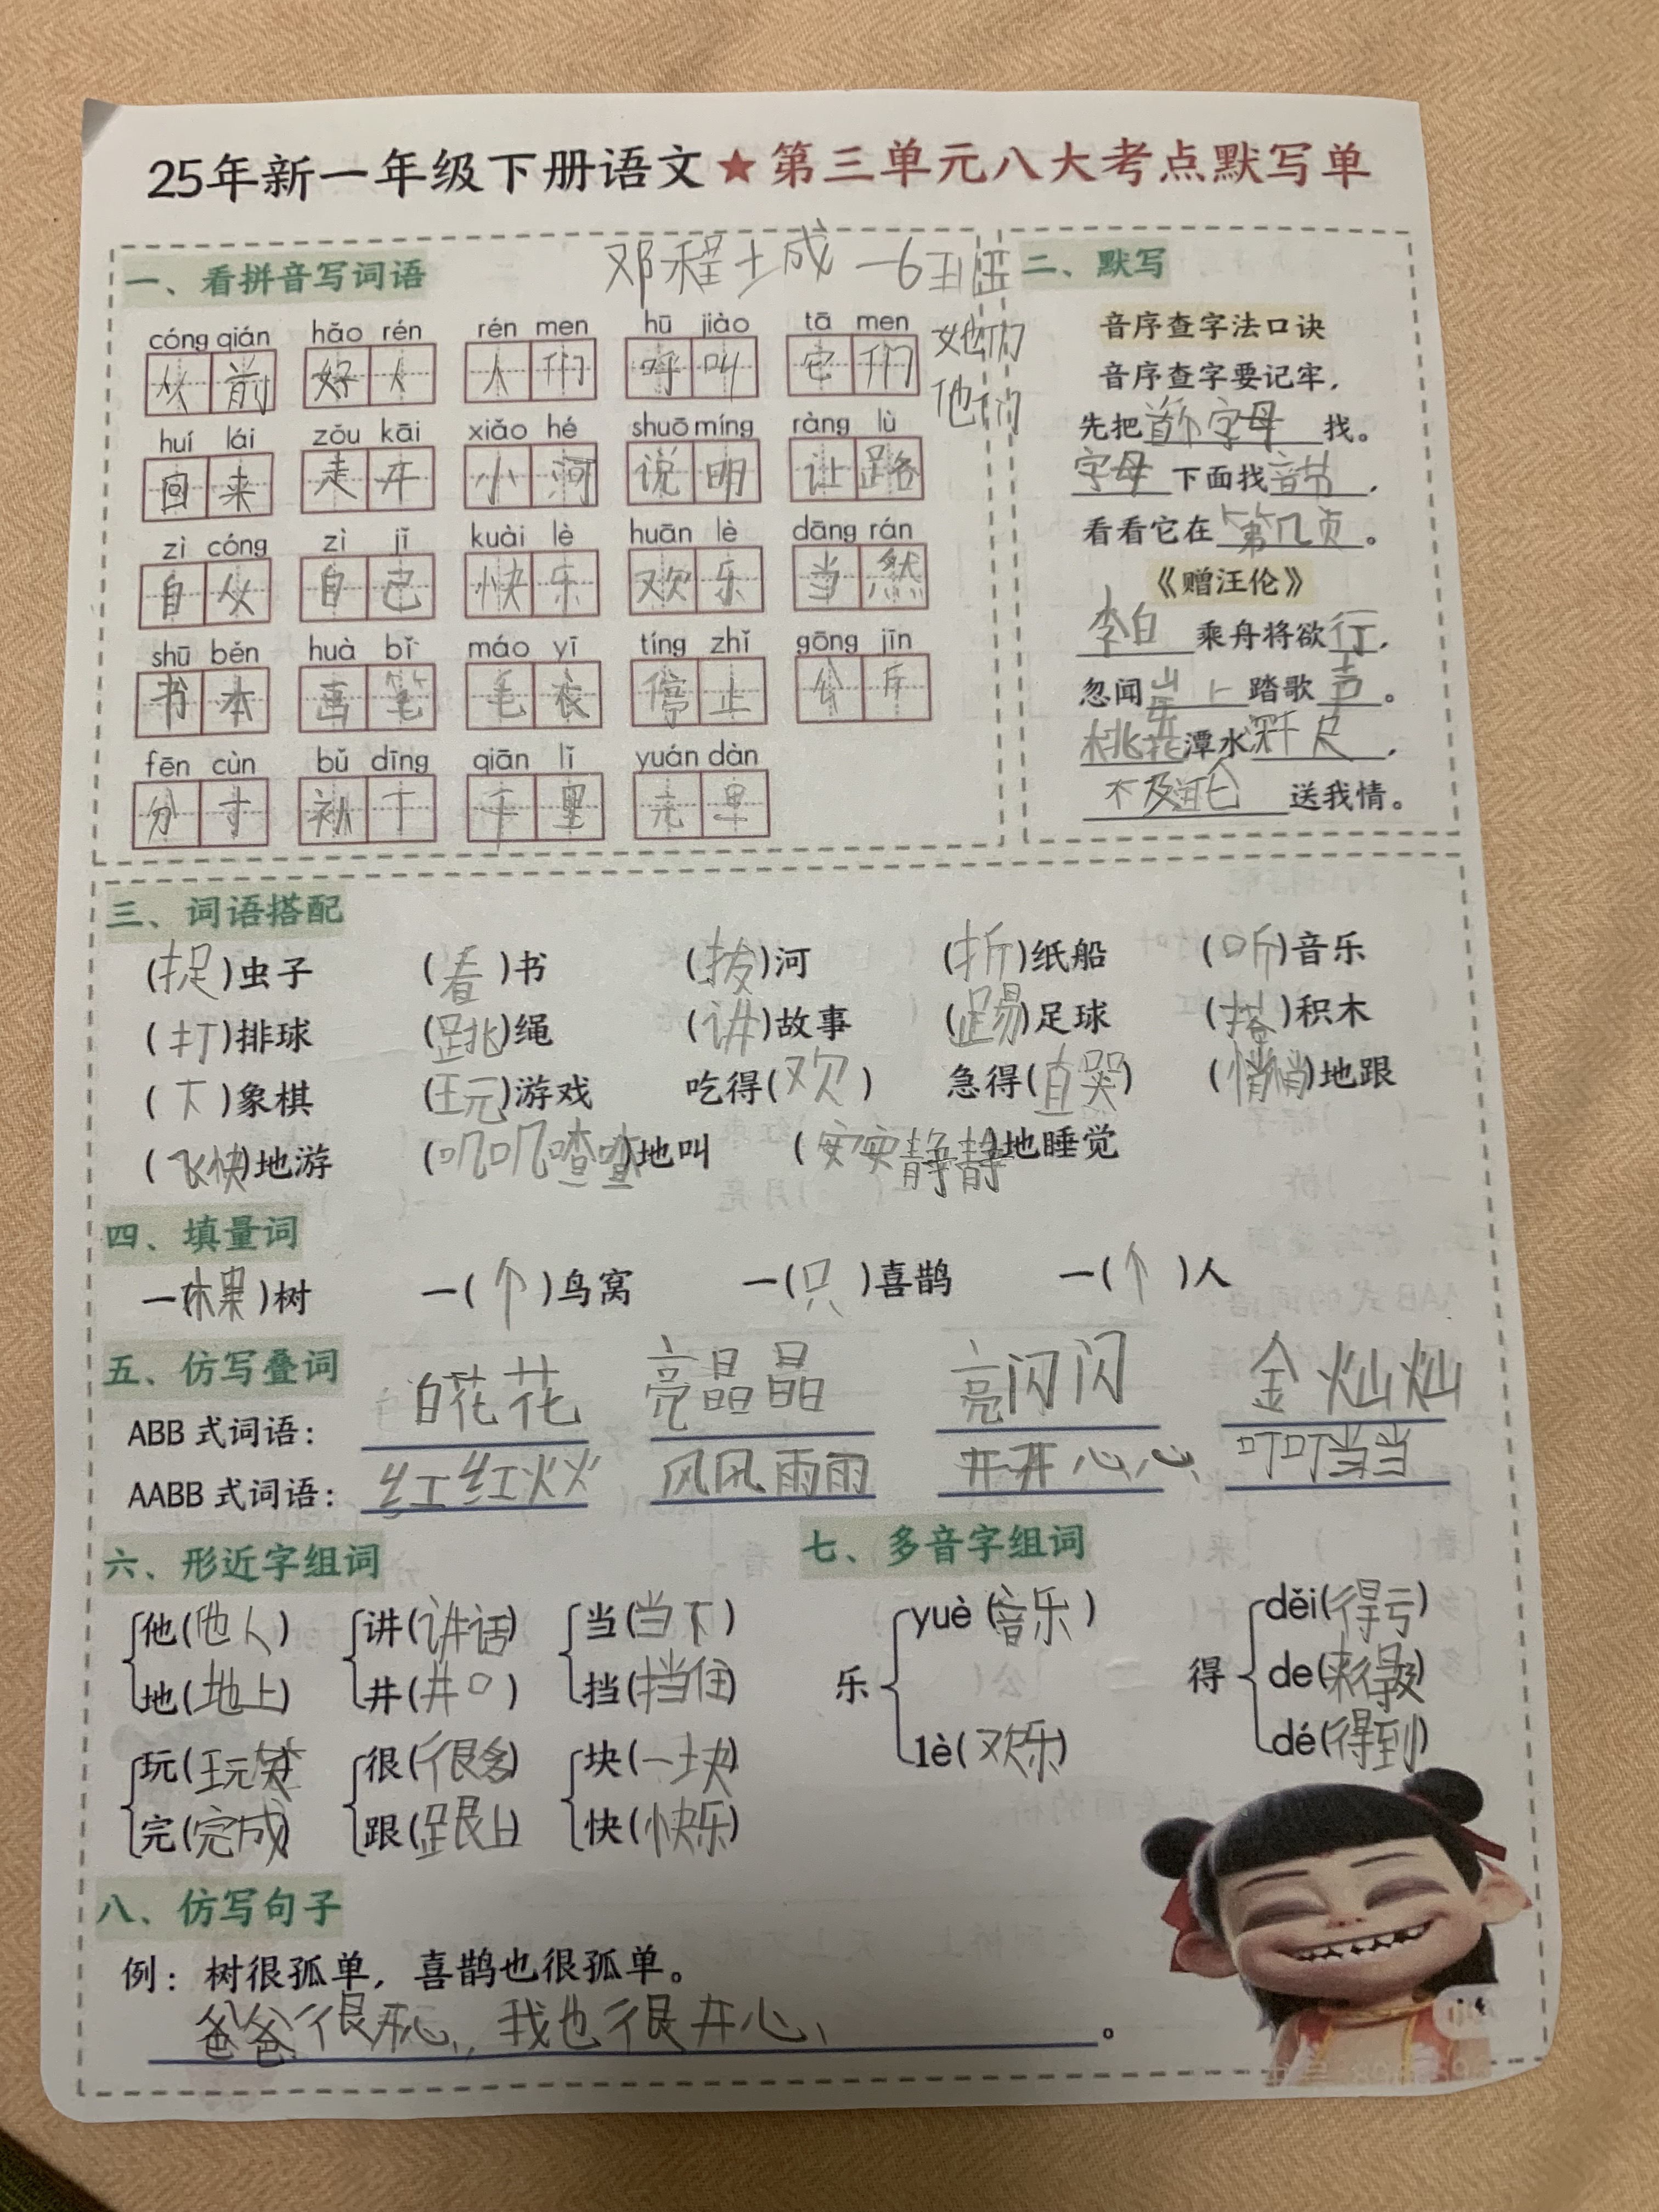 25年新一年级下册语文★第三单元八大考点默写单
邓程士成 一6班
一、看拼音写词语
cóng qián hǎo rén rén men hū jiào tā men
从前 好人 人们 呼叫 它们 她们
他们
huí lái zǒu kāi xiǎo hé shuō míng ràng lù
回来 走开 小河 说明 让路
zì cóng zì jǐ kuài lè huān lè dāng rán
自从 自己 快乐 欢乐 当然
shū běn huà bǐ máo yī tíng zhǐ gōng jīn
书本 画笔 毛衣 停止 公斤
fēn cùn bǔ dīng qiān lǐ yuán dàn
分寸 补丁 千里 元旦
二、默写
音序查字法口诀
音序查字要记牢，
先把首个字母找。
字母下面找音节，
看看它在第几页。
《赠汪伦》
李白乘舟将欲行，
忽闻岸上踏歌声。
桃花潭水深千尺，
不及汪伦送我情。
三、词语搭配
(捉)虫子 (看)书 (拔)河 (折)纸船 (听)音乐
(打)排球 (跳)绳 (讲)故事 (踢)足球 (搭)积木
(下)象棋 (玩)游戏 吃得(欢) 急得(直哭) (悄悄)地跟
(飞快)地游 (叽叽喳喳)地叫 (安安静静)地睡觉
四、填量词
一(棵)树 一(个)鸟窝 一(只)喜鹊 一(个)人
五、仿写叠词
ABB 式词语： 白花花 亮晶晶 亮闪闪 金灿灿
AABB 式词语： 红红火火 风风雨雨 开开心心 叮叮当当
六、形近字组词
他(他人) 讲(讲话) 当(当下)
地(地上) 井(井口) 挡(挡住)
玩(玩笑) 很(很多) 块(一块)
完(完成) 跟(跟上) 快(快乐)
七、多音字组词
乐 yuè(音乐) lè(欢乐)
得 děi(得亏) de(来得及) dé(得到)
八、仿写句子
例：树很孤单，喜鹊也很孤单。
爸爸很开心，我也很开心。